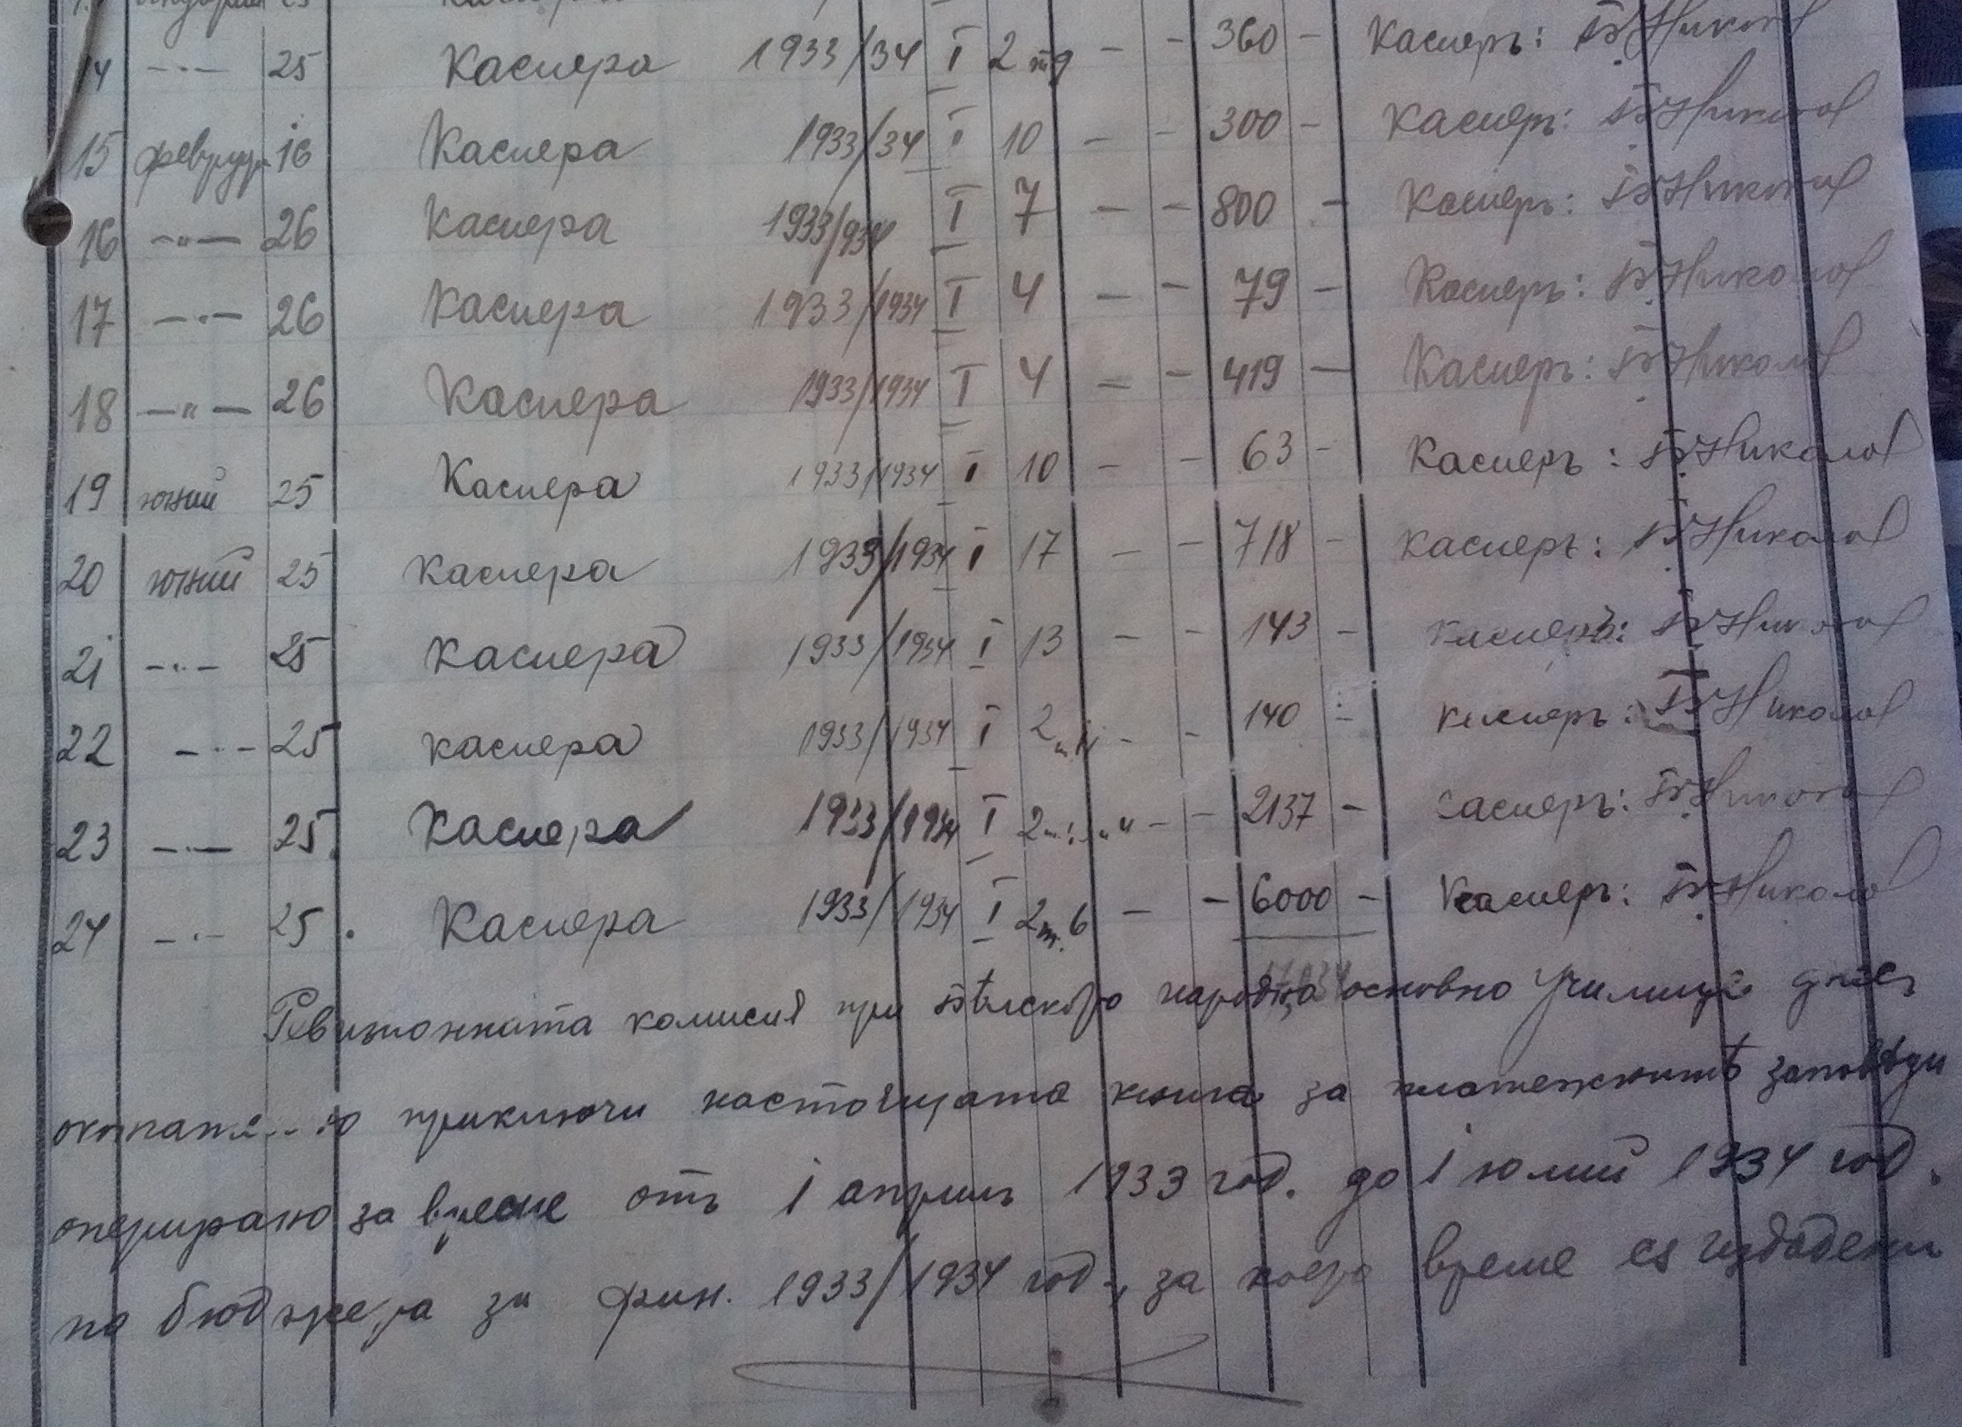 14 -"- 25 Касиера 1933/34 I 2 - - 360 - Касиеръ: Б. Николов
15 февруар 16 Касиера 1933/34 I 10 - - 300 - Касиеръ: Б. Николов
16 -"- 26 Касиера 1933/934 I 7 - - 800 - Касиеръ: Б. Николов
17 -"- 26 Касиера 1933/1934 I 4 - - 79 - Касиеръ: Б. Николов
18 -"- 26 Касиера 1933/1934 I 4 - - 419 - Касиеръ: Б. Николов
19 юний 25 Касиера 1933/1934 I 10 - - 63 - Касиеръ: Б. Николов
20 юний 25 Касиера 1933/1934 I 17 - - 718 - Касиеръ: Б. Николов
21 -"- 25 Касиера 1933/1934 I 13 - - 143 - Касиеръ: Б. Николов
22 -"- 25 Касиера 1933/1934 I 2 - - 140 - Касиеръ: Б. Николов
23 -"- 25 Касиера 1933/1934 I 2 - - 2137 - Касиеръ: Б. Николов
24 -"- 25 Касиера 1933/1934 I 2 т. 6 - - 6000 - Касиеръ: Б. Николов
Ревизионната комисия при основно училище днес
приключи настоящата книга за платежнитѣ заповѣди
оперирано за време отъ 1 априль 1933 год. до 1 юлий 1934 год.
по бюджета за фин. 1933/1934 год., за което време са издадени